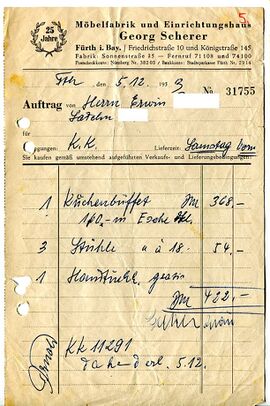 5.
25
Jahre
Möbelfabrik und Einrichtungshaus
Georg Scherer
Fürth i. Bay. | Friedrichstraße 10 und Königstraße 145
Fabrik: Sonnenstraße 35 — Fernruf 71103 und 74100
Postscheckkonto: Nürnberg Nr. 38203 / Bankkonto: Stadtsparkasse Fürth Nr. 2914
den 5.12. 1953
No 31755
Auftrag von Herrn Erwin
für
K.K. Lieferzeit: Samstag vorm
Sie kaufen gemäß umstehend aufgeführten Verkaufs- und Lieferungsbedingungen:
1 Küchenbüffet DM 368.-
160,- m Esche
3 Stühle a 18.- 54.-
1 gratis
DM 422.-
KK 11291
5.12.